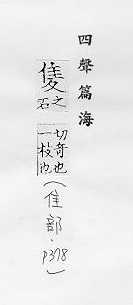 四聲篇海
隻之石切奇也一枚也
(隹部·P378)